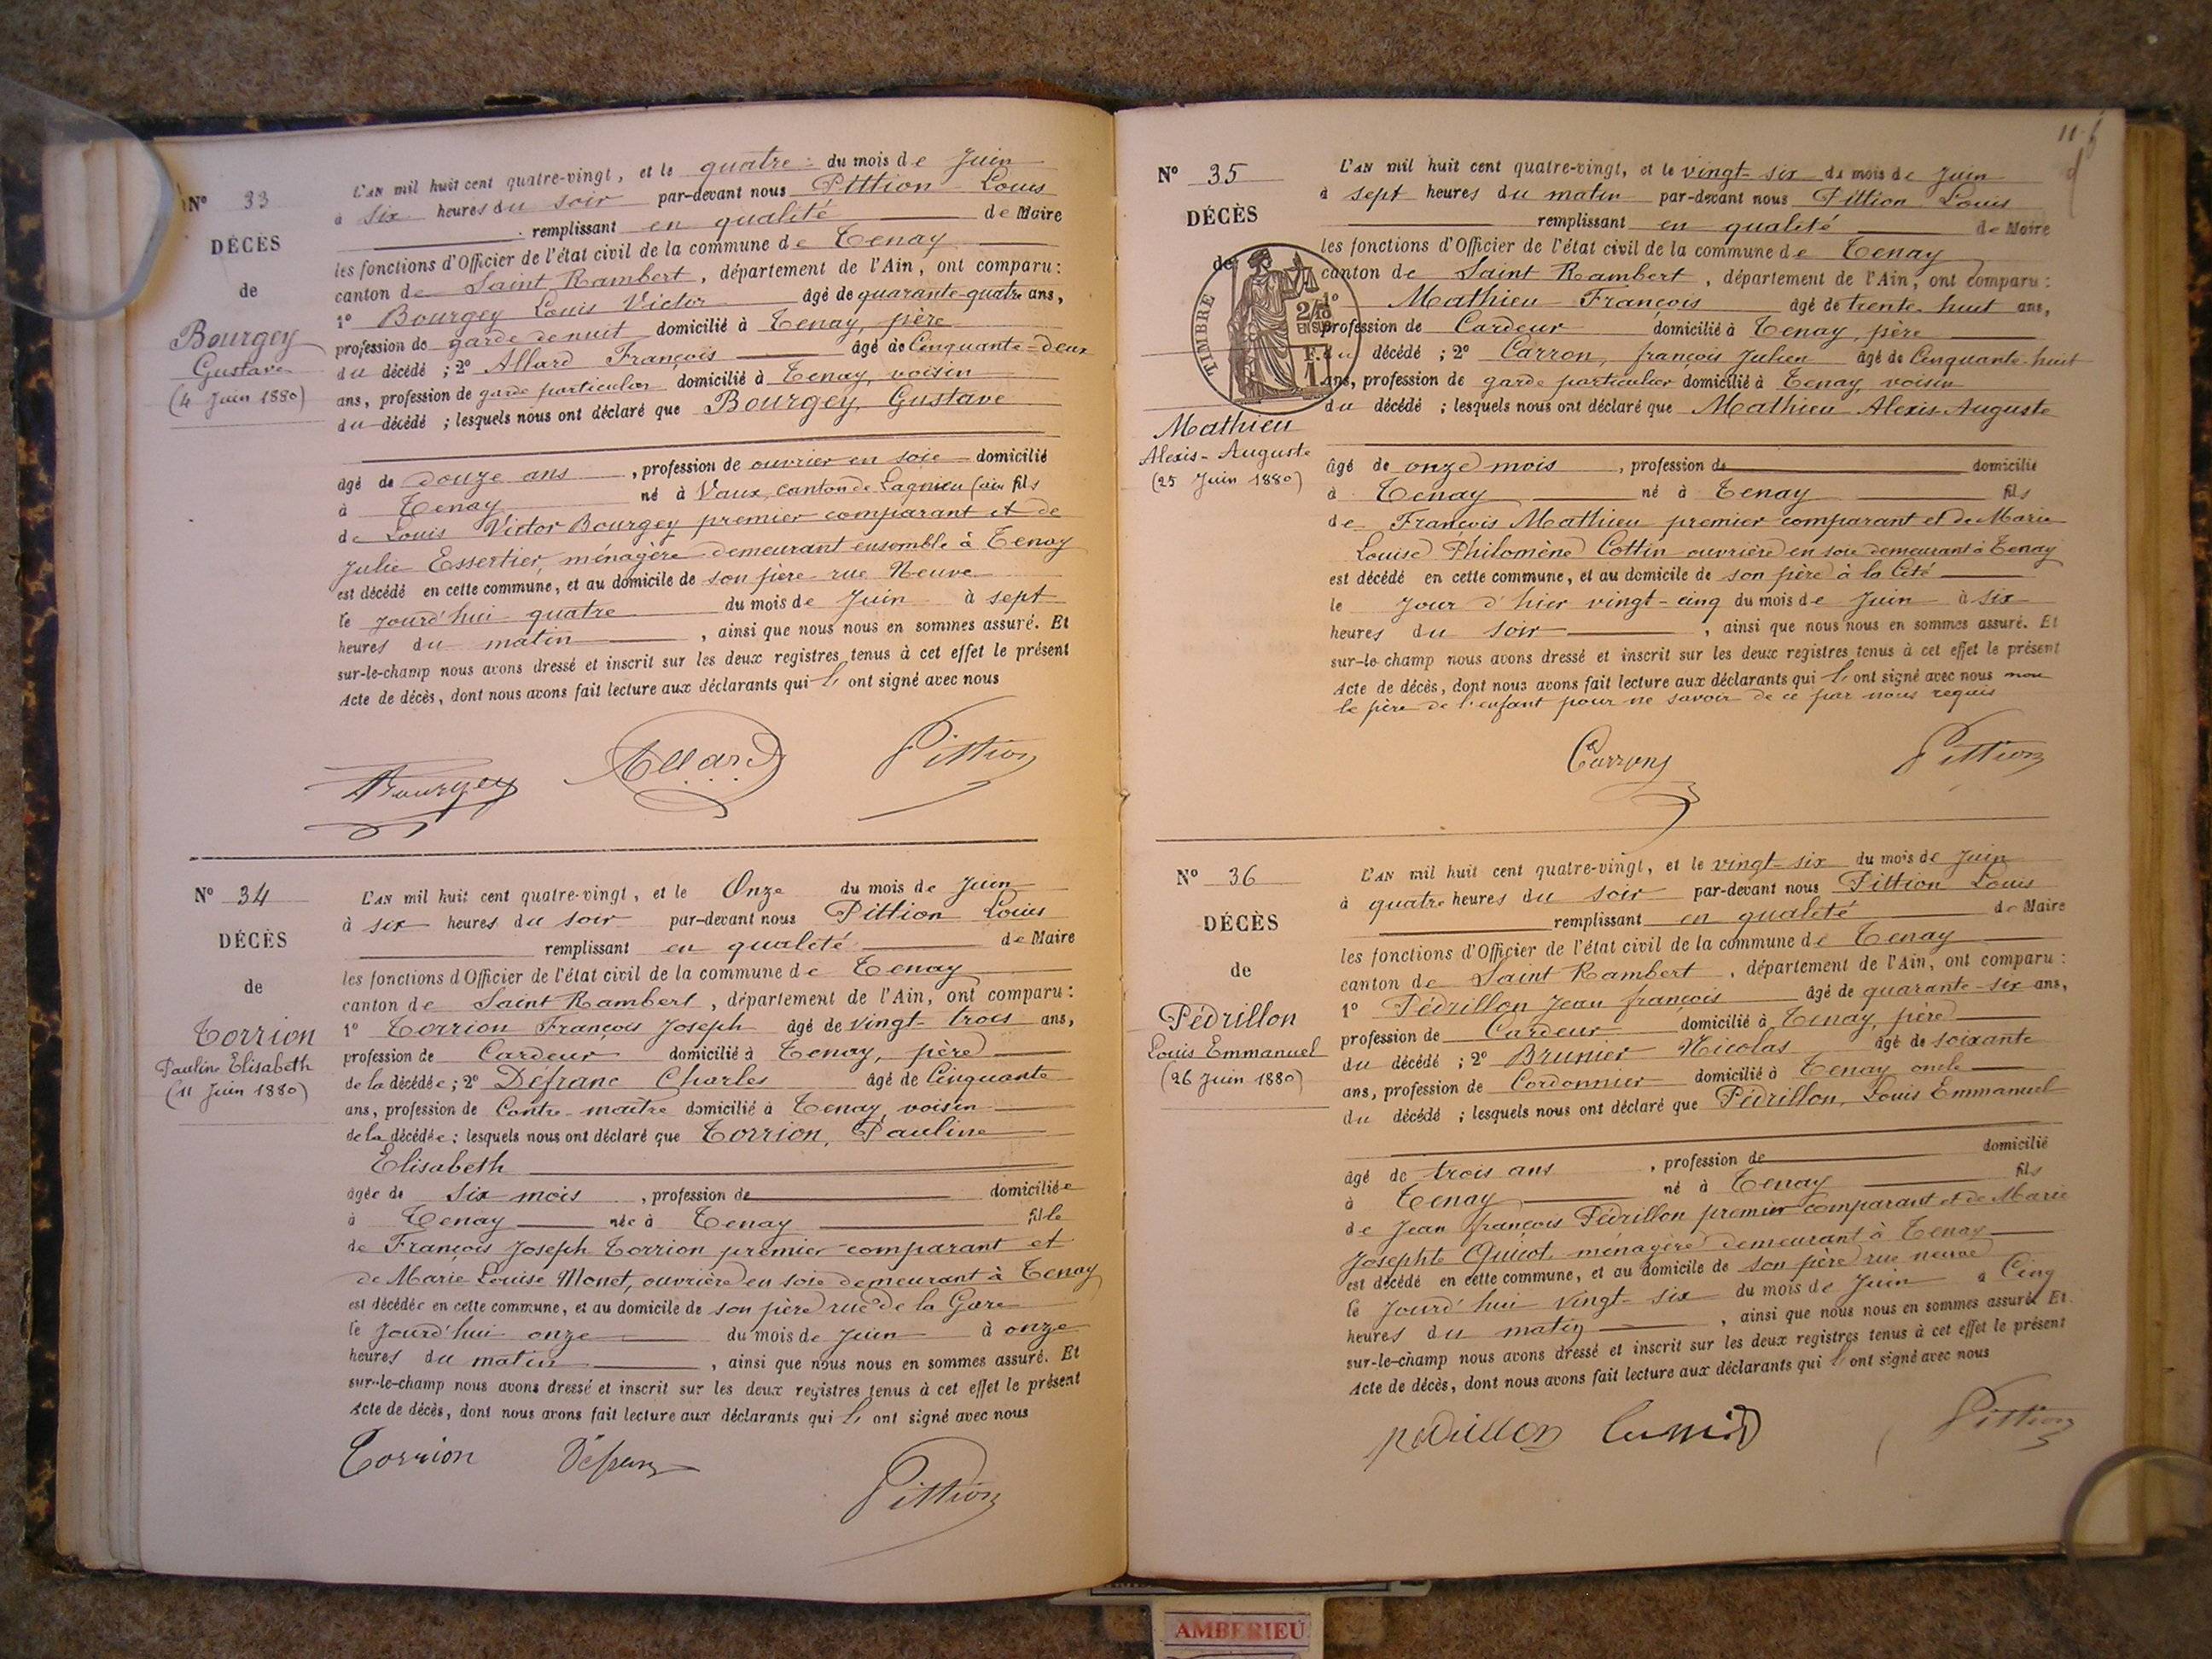 N° 33
DÉCÈS
de
Bourgey
Gustave
(4 Juin 1880)
L'AN mil huit cent quatre-vingt, et le quatre du mois de Juin
à six heures du soir par-devant nous Pittion Louis
remplissant en qualité de Maire
les fonctions d'Officier de l'état civil de la commune de Tenay
canton de Saint Rambert, département de l'Ain, ont comparu:
1° Bourgey Louis Victor âgé de quarante-quatre ans,
profession de garde de nuit domicilié à Tenay, père
du décédé; 2° Allard François âgé de Cinquante-deux
ans, profession de garde particulier domicilié à Tenay, voisin
du décédé; lesquels nous ont déclaré que Bourgey, Gustave
âgé de douze ans, profession de ouvrier en soie domicilié
à Tenay né à Vaux, canton de Lagnieu (ain fils
de Louis Victor Bourgey premier comparant et de
Julie Essertier, ménagère demeurant ensemble à Tenay
est décédé en cette commune, et au domicile de son père rue Neuve
le jourd'hui quatre du mois de Juin à sept
heures du matin, ainsi que nous nous en sommes assuré. Et
sur-le-champ nous avons dressé et inscrit sur les deux registres tenus à cet effet le présent
Acte de décès, dont nous avons fait lecture aux déclarants qui l' ont signé avec nous
Bourgey Allard Pittion
N° 34
DÉCÈS
de
Torrion
Pauline Elisabeth
(11 Juin 1880)
L'AN mil huit cent quatre-vingt, et le Onze du mois de Juin
à six heures du soir par-devant nous Pittion Louis
remplissant en qualité de Maire
les fonctions d'Officier de l'état civil de la commune de Tenay
canton de Saint Rambert, département de l'Ain, ont comparu:
1° Torrion François Joseph âgé de vingt-trois ans,
profession de Cardeur domicilié à Tenay, père
de la décédée; 2° Défranc Charles âgé de Cinquante
ans, profession de Contre-maître domicilié à Tenay, voisin
de la décédée; lesquels nous ont déclaré que Torrion, Pauline
Elisabeth
âgée de Six mois, profession de domiciliée
à Tenay née à Tenay fille
de François Joseph Torrion premier comparant et
de Marie Louise Monet, ouvrière en soie demeurant à Tenay
est décédée en cette commune, et au domicile de son père rue de la Gare
le jourd'hui onze du mois de Juin à onze
heures du matin, ainsi que nous nous en sommes assuré. Et
sur-le-champ nous avons dressé et inscrit sur les deux registres tenus à cet effet le présent
Acte de décès, dont nous avons fait lecture aux déclarants qui l' ont signé avec nous
Torrion Défranc
Pittion
11
N° 35
DÉCÈS
de
TIMBRE
2/10
EN SUS
1 F.
Mathieu
Alexis-Auguste
(25 Juin 1880)
L'AN mil huit cent quatre-vingt, et le vingt-six du mois de Juin
à sept heures du matin par-devant nous Pittion Louis
remplissant en qualité de Maire
les fonctions d'Officier de l'état civil de la commune de Tenay
canton de Saint Rambert, département de l'Ain, ont comparu:
1° Mathieu François âgé de trente-huit ans,
profession de Cardeur domicilié à Tenay, père
du décédé; 2° Carron, françois Julien âgé de Cinquante-huit
ans, profession de garde particulier domicilié à Tenay, voisin
du décédé; lesquels nous ont déclaré que Mathieu Alexis Auguste
âgé de onze mois, profession de domicilié
à Tenay né à Tenay fils
de François Mathieu premier comparant et de Marie
Louise Philomène Cottin ouvrière en soie demeurant à Tenay
est décédé en cette commune, et au domicile de son père à la Cité
le jour d'hier vingt-cinq du mois de Juin à six
heures du soir, ainsi que nous nous en sommes assuré. Et
sur-le-champ nous avons dressé et inscrit sur les deux registres tenus à cet effet le présent
Acte de décès, dont nous avons fait lecture aux déclarants qui l' ont signé avec nous non
le père de l'enfant pour ne savoir de ce par nous requis
Carron Pittion
N° 36
DÉCÈS
de
Pédrillon
Louis Emmanuel
(26 Juin 1880)
L'AN mil huit cent quatre-vingt, et le vingt-six du mois de Juin
à quatre heures du soir par-devant nous Pittion Louis
remplissant en qualité de Maire
les fonctions d'Officier de l'état civil de la commune de Tenay
canton de Saint Rambert, département de l'Ain, ont comparu:
1° Pédrillon Jean françois âgé de quarante-six ans,
profession de Cardeur domicilié à Tenay, père
du décédé; 2° Brunier Nicolas âgé de soixante
ans, profession de Cordonnier domicilié à Tenay oncle
du décédé; lesquels nous ont déclaré que Pédrillon, Louis Emmanuel
âgé de trois ans, profession de domicilié
à Tenay né à Tenay fils
de Jean françois Pédrillon premier comparant et de Marie
Josephte Quicot, ménagère demeurant à Tenay
est décédé en cette commune, et au domicile de son père rue neuve
le jourd'hui vingt-six du mois de Juin à Cinq
heures du matin, ainsi que nous nous en sommes assuré. Et
sur-le-champ nous avons dressé et inscrit sur les deux registres tenus à cet effet le présent
Acte de décès, dont nous avons fait lecture aux déclarants qui l' ont signé avec nous
pedrillon Pittion
AMBERIEU